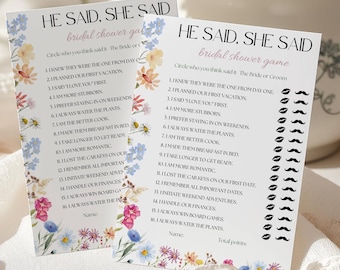 HE SAID, SHE SAID
bridal shower game
Circle who you think said it: The Bride or Groom
1. I KNEW THEY WERE THE ONE FROM DAY ONE.
2. I PLANNED OUR FIRST VACATION.
3. I SAID "I LOVE YOU" FIRST.
4. I AM MORE STUBBORN.
5. I PREFER STAYING IN ON WEEKENDS.
6. I ALWAYS WATER THE PLANTS.
7. I AM THE BETTER COOK.
8. I MADE THEM BREAKFAST IN BED.
9. I TAKE LONGER TO GET READY.
10. I AM MORE ROMANTIC.
11. I LOST THE CAR KEYS ON OUR FIRST
12. I REMEMBER ALL IMPORTANT DATES.
13. I INITIATE WEEKEND ADVENTURES.
14. I HANDLE OUR FINANCES.
15. I ALWAYS WIN BOARD GAMES.
16. I ALWAYS WATER THE PLANT
Name:
HE SAID, SHE SAID
bridal shower game
Circle who you think said it: The Bride or Groom
1. I KNEW THEY WERE THE ONE FROM DAY ONE.
2. I PLANNED OUR FIRST VACATION.
3. I SAID "I LOVE YOU" FIRST.
4. I AM MORE STUBBORN.
5. I PREFER STAYING IN ON WEEKENDS.
6. I ALWAYS WATER THE PLANTS.
7. I AM THE BETTER COOK.
8. I MADE THEM BREAKFAST IN BED.
9. I TAKE LONGER TO GET READY.
10. I AM MORE ROMANTIC.
11. I LOST THE CAR KEYS ON OUR FIRST DATE.
12. I REMEMBER ALL IMPORTANT DATES.
13. I INITIATE WEEKEND ADVENTURES.
14. I HANDLE OUR FINANCES.
15. I ALWAYS WIN BOARD GAMES.
16. I ALWAYS WATER THE PLANTS.
Name: Total points: